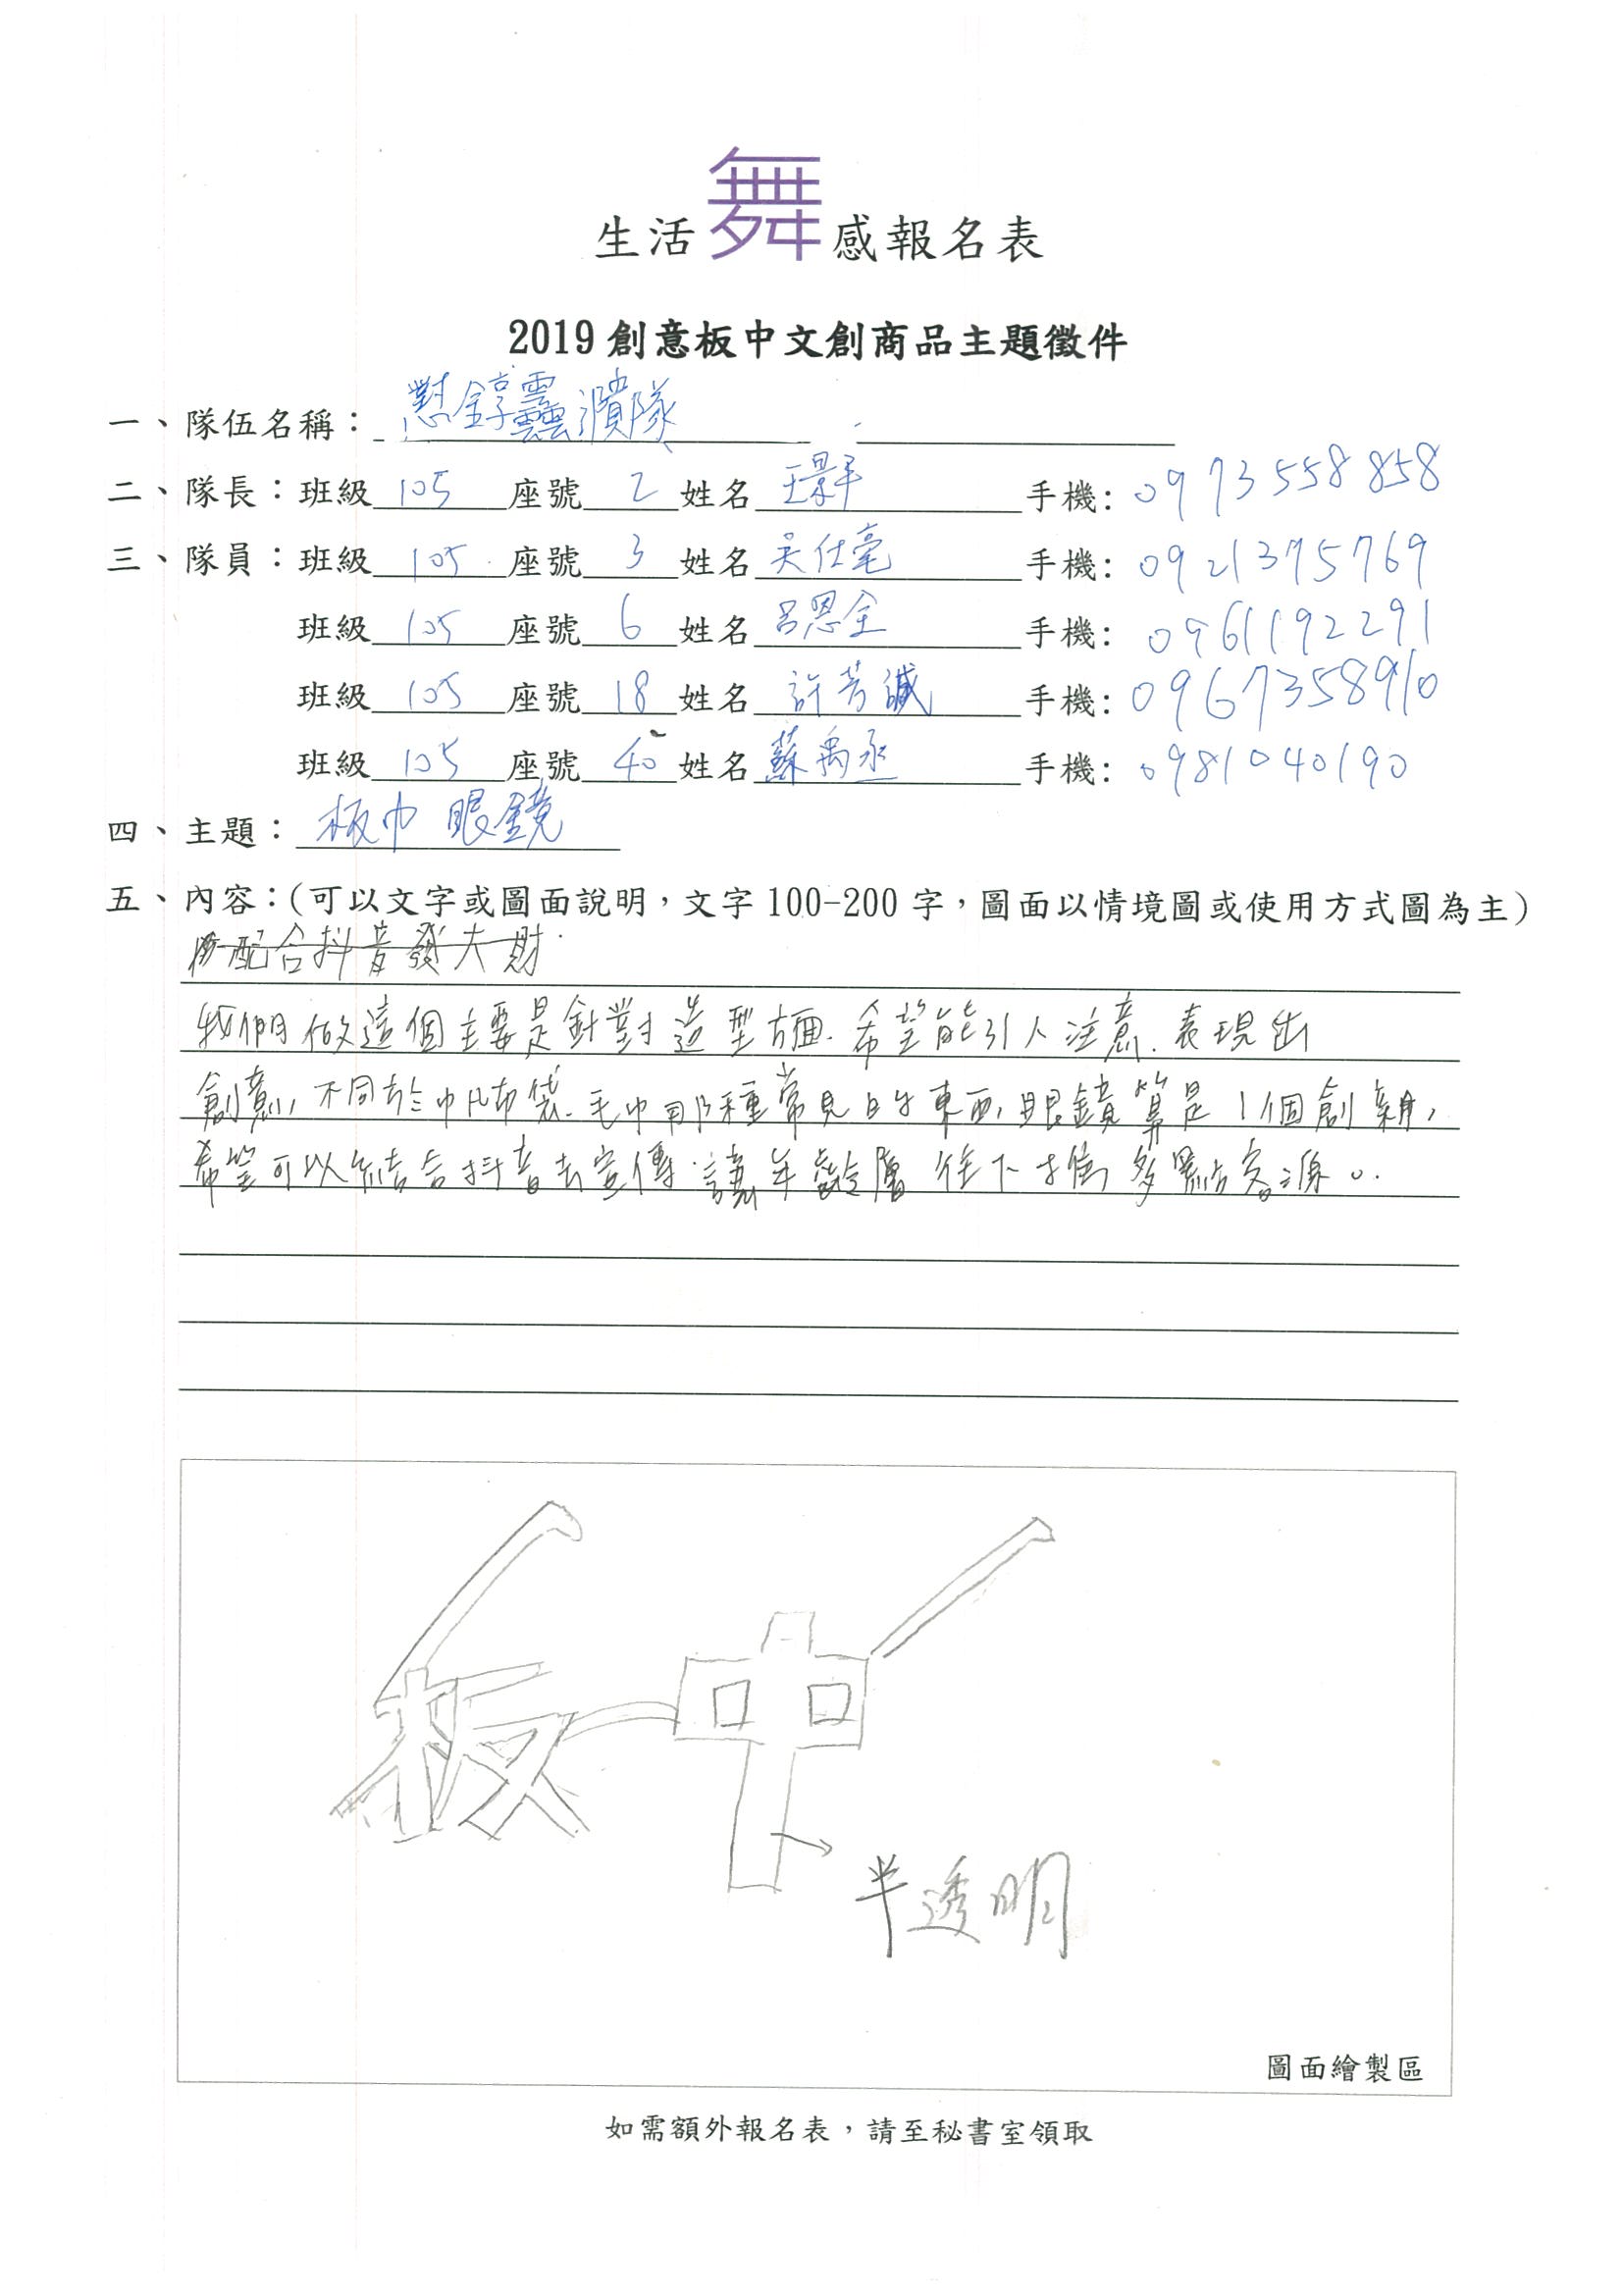 生活舞感報名表
2019創意板中文創商品主題徵件
一、隊伍名稱：懟錞靐濻隊
二、隊長：班級 105 座號 2 姓名 王景平 手機: 0973558858
三、隊員：班級 105 座號 3 姓名 吳仕毫 手機: 0921375769
班級 105 座號 6 姓名 呂恩全 手機: 0961192291
班級 105 座號 18 姓名 許芳誠 手機: 0967358910
班級 105 座號 40 姓名 蘇禹丞 手機: 0981040190
四、主題：板巾 眼鏡
五、內容：(可以文字或圖面說明，文字100-200字，圖面以情境圖或使用方式圖為主)
配合抖音發大財.
我們做這個主要是針對造型方面. 希望能引人注意. 表現出
創意, 不同於巾帆布袋. 毛巾那種常見的東西, 眼鏡算是1個創新,
希望可以結合抖音去宣傳. 讓年齡層往下才有多點客源。.
板中
半透明
圖面繪製區
如需額外報名表，請至秘書室領取